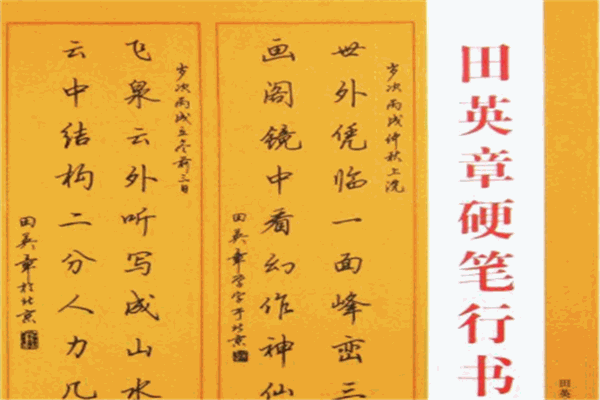 田英
田英章硬笔行书
岁次丙戌仲秋上浣
世外凭临一面峰峦三
画阁镜中看幻作神仙
田英章学字于北京
岁次丙戌立冬前三日
飞泉云外听写成山水
云中结构二分人力几
田英章于北京